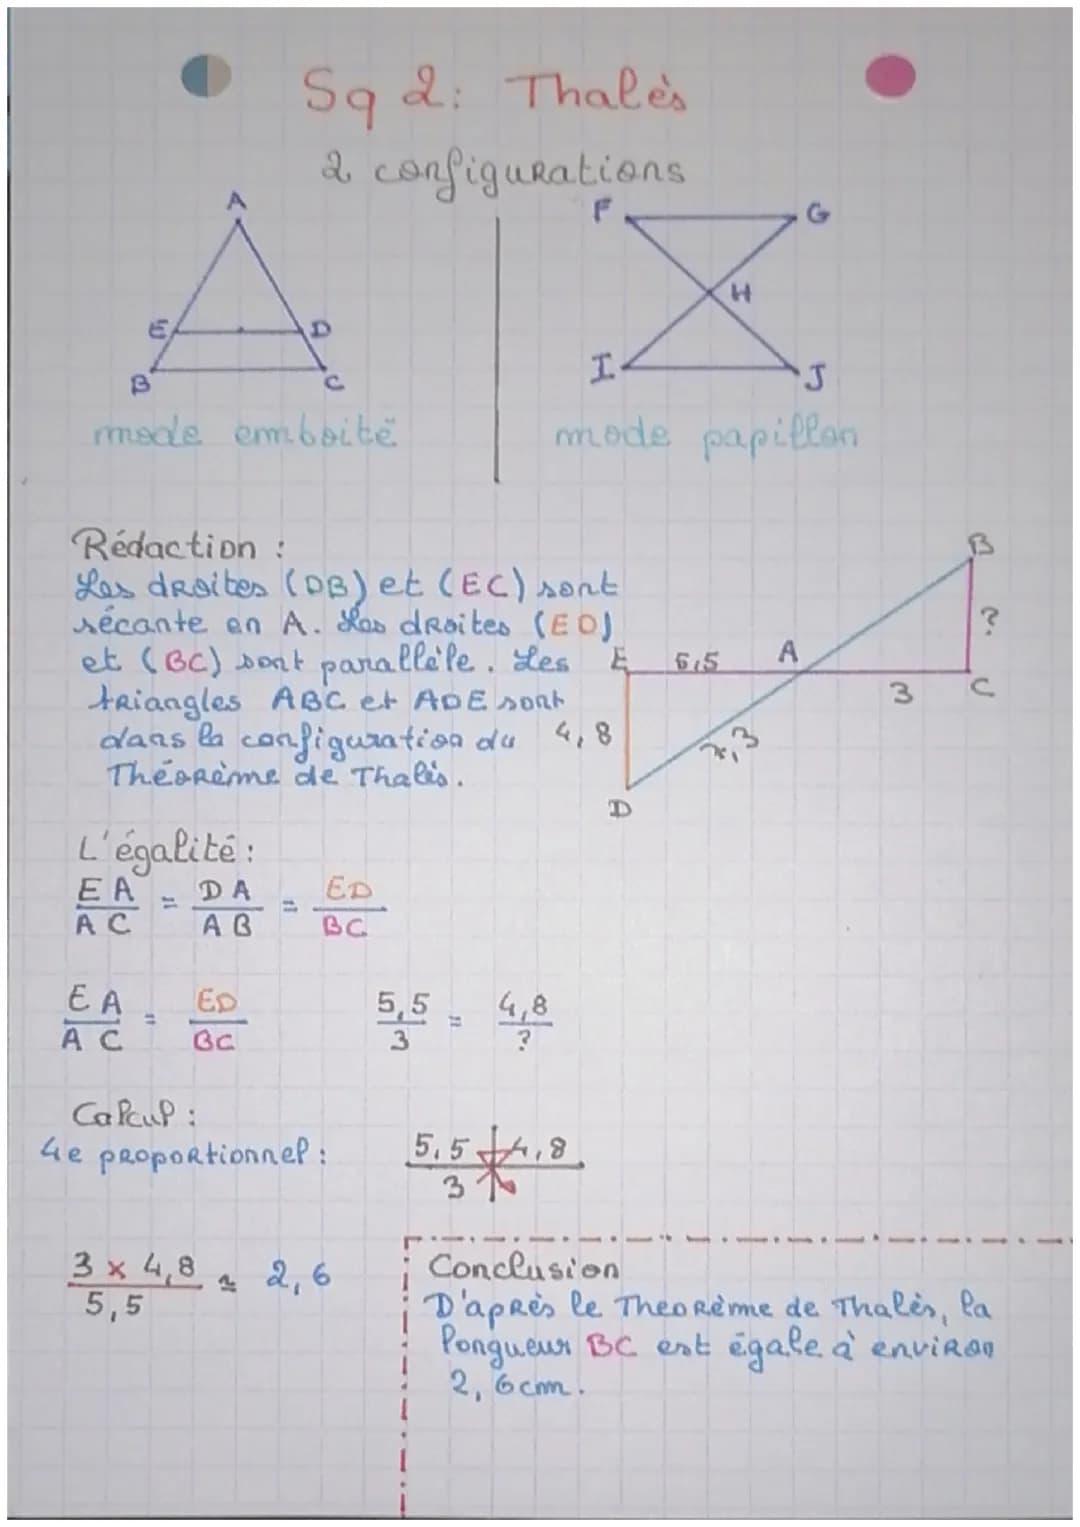 Sq 2: Thalès
2 configurations
A
E
D
B
C
F
G
H
I
J
mode emboité
mode papillon
Rédaction :
Les droites (DB) et (EC) sont
sécante en A. Les droites (ED)
et (BC) sont parallèle. Les
triangles ABC et ADE sont
dans la configuration du
Théorème de Thalès.
B
?
E
5,5
A
3
C
4,8
7,3
D
L'égalité :
EA/AC = DA/AB = ED/BC
EA/AC = ED/BC
5,5/3 = 4,8/?
Calcul :
4e proportionnel :
5,5 4,8
3
3 x 4,8 / 5,5 ≈ 2,6
Conclusion
D'après le Theorème de Thalès, la
longueur BC est égale à environ
2,6cm.